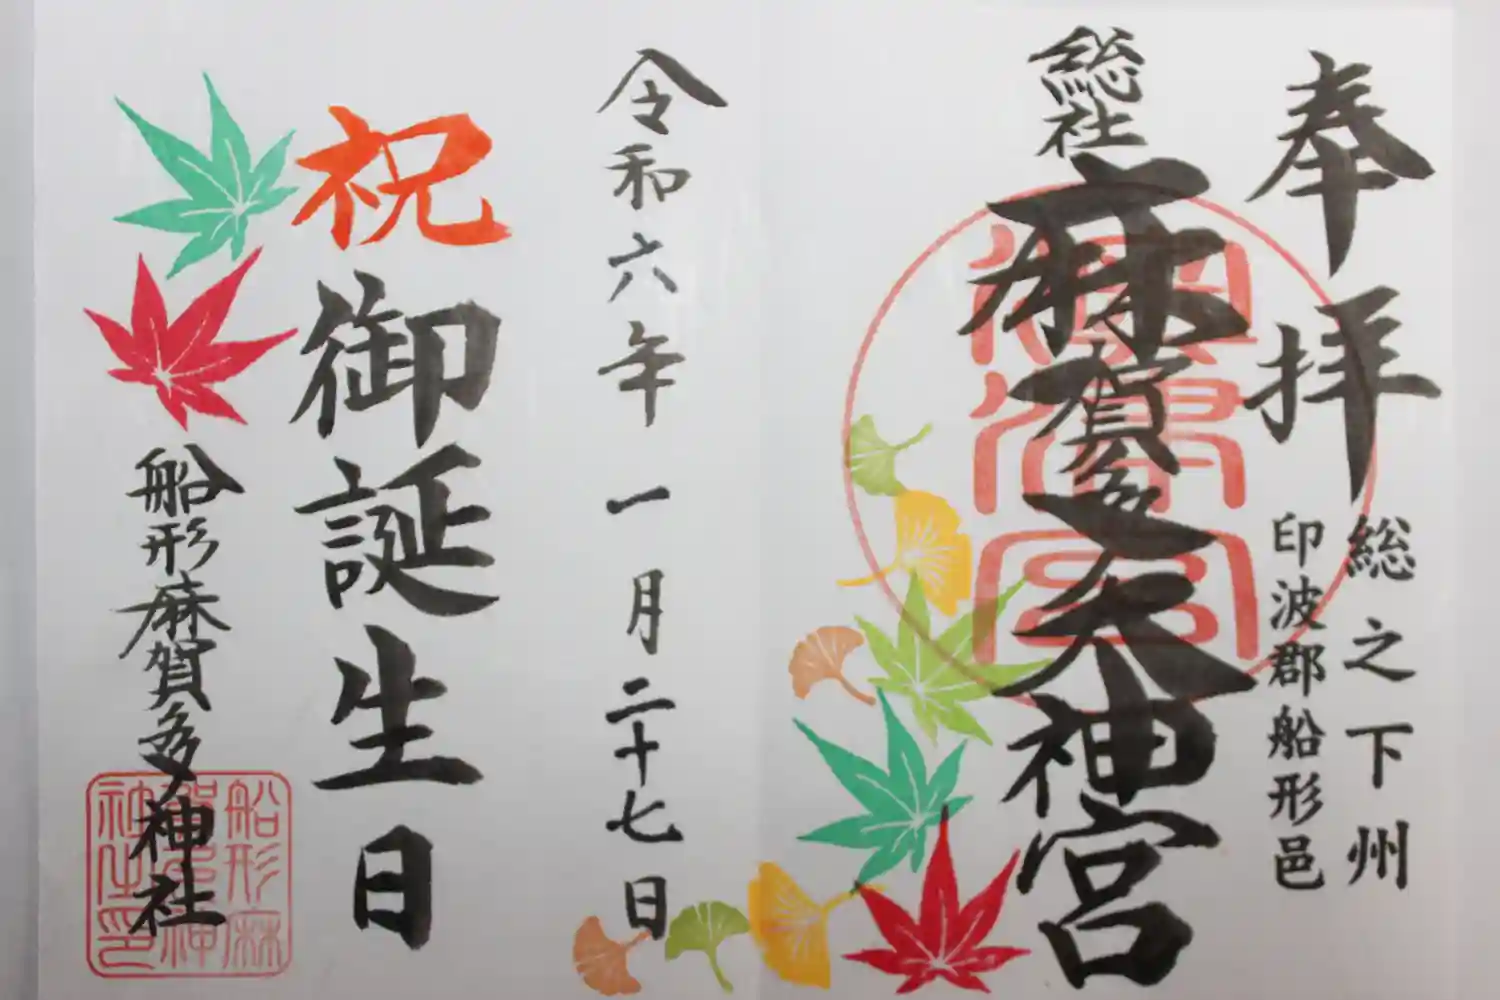 奉拝
総之下州
印波郡船形邑
総社
麻賀多大神宮
令和六年一月二十七日
祝御誕生日
船形麻賀多神社